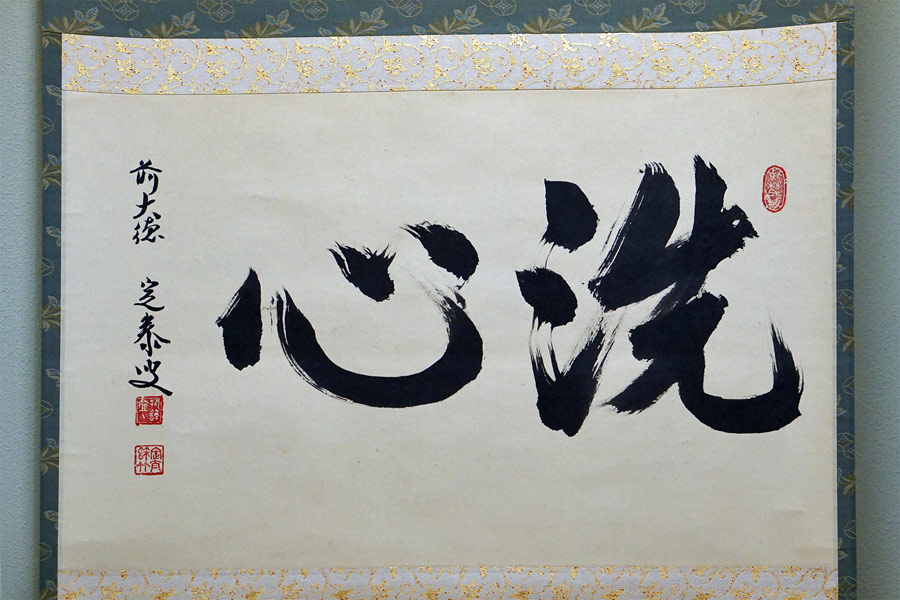 洗心
前大徳 定泰叟